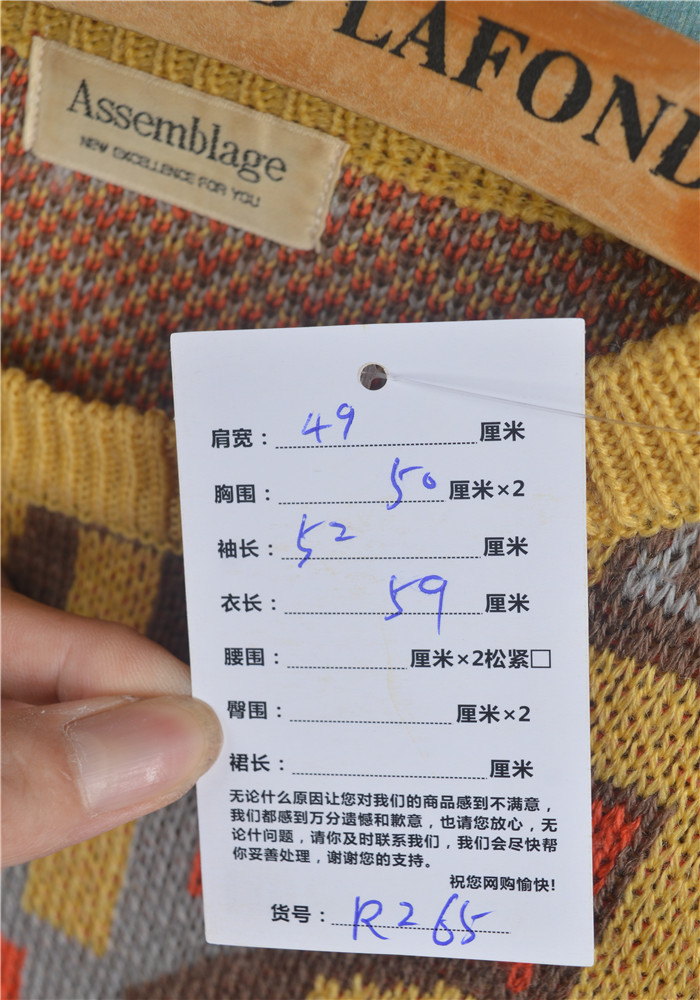 D LAFOND
Assemblage
NEW EXCELLENCE FOR YOU
肩宽：49厘米
胸围：50厘米×2
袖长：52厘米
衣长：59厘米
腰围：厘米×2松紧□
臀围：厘米×2
裙长：厘米
无论什么原因让您对我们的商品感到不满意，
我们都感到万分遗憾和歉意，也请您放心，无
论什问题，请你及时联系我们，我们会尽快帮
你妥善处理，谢谢您的支持。
祝您网购愉快!
货号：R265